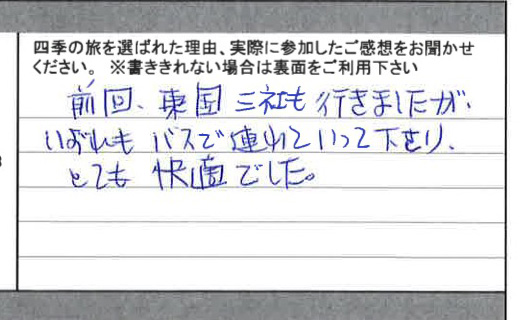 四季の旅を選ばれた理由、実際に参加したご感想をお聞かせ
ください。 ※書ききれない場合は裏面をご利用下さい
前回、東国三社も行きましたが、
いずれもバスで連れていって下さり、
とても快適でした。